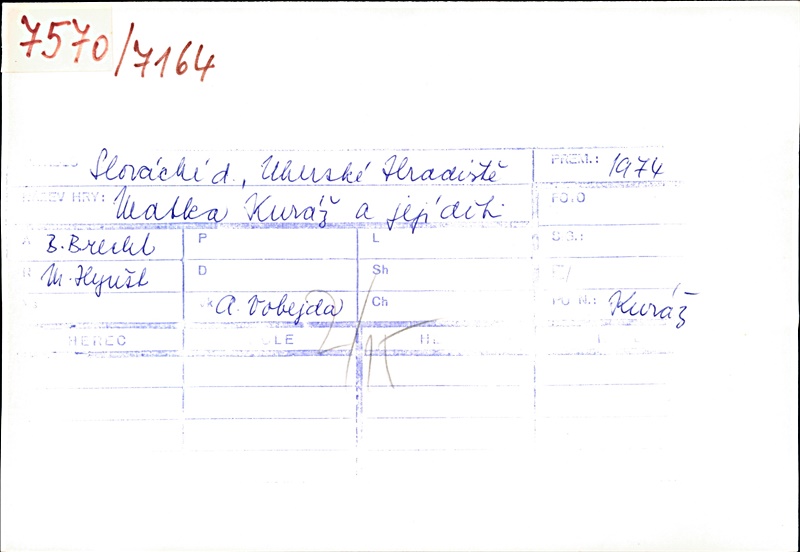 7570/7164
Slovácké d., Uherské Hradiště PREM.: 1974
NÁZEV HRY: Matka Kuráž a její děti FOTO
A B. Brecht P L
R M. Hynšt D Sh
A. Vobejda Ch Kuráž
HEREC
2/15